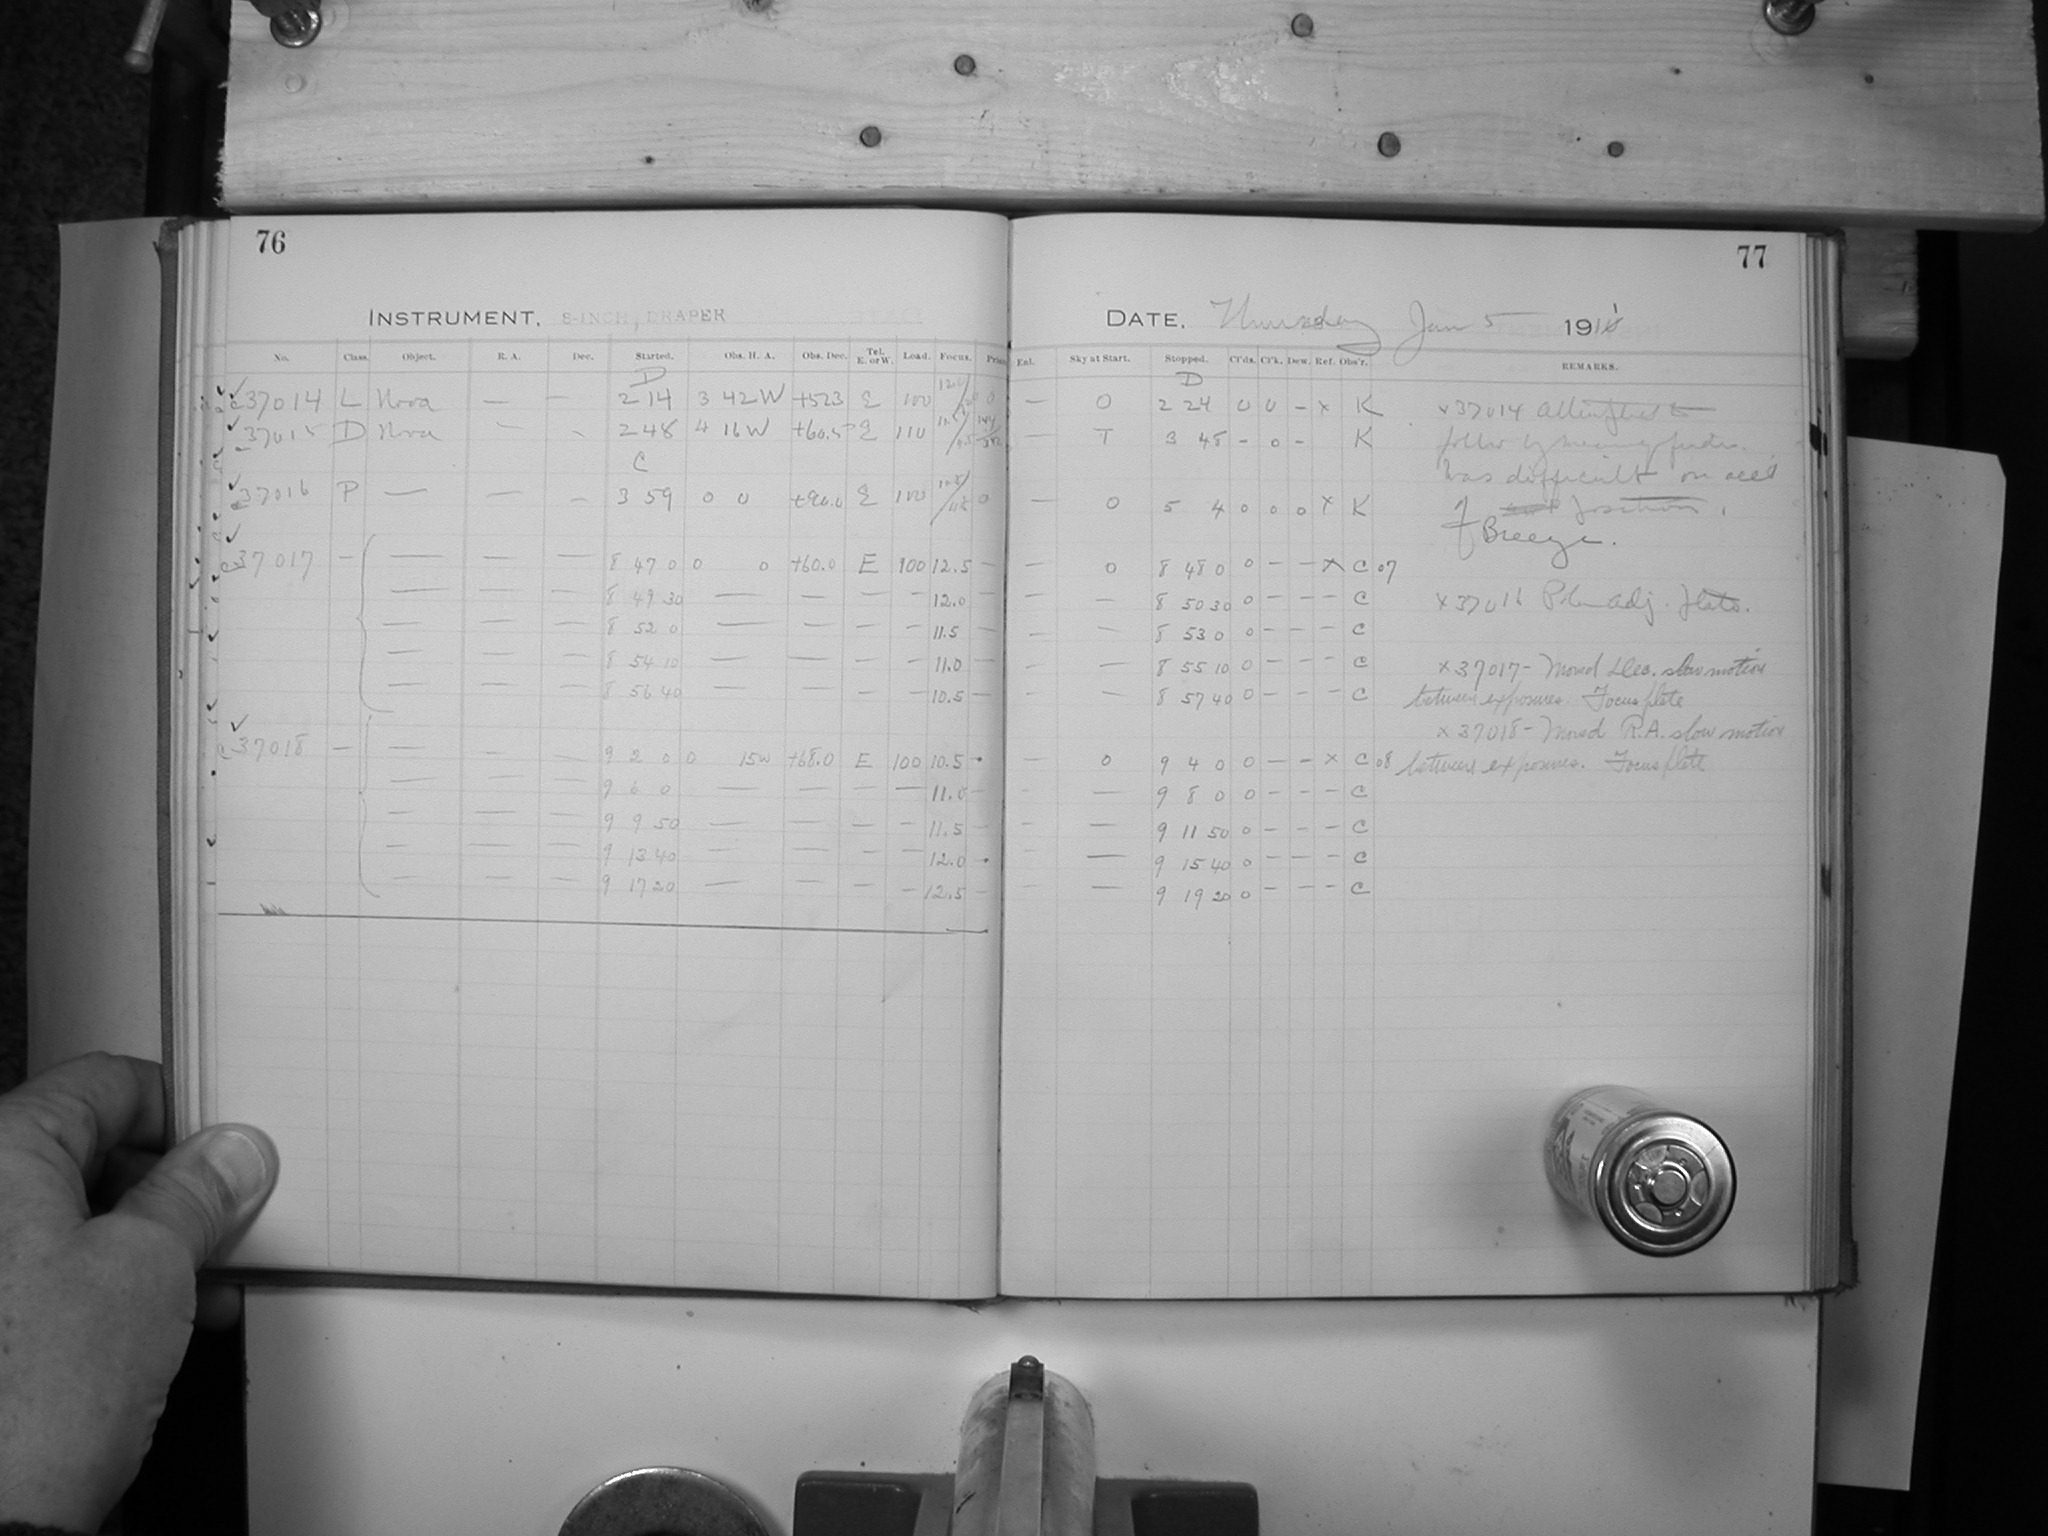 76
INSTRUMENT. 8-INCH, DRAPER
No. Class. Object. R. A. Dec. Started. Obs. H. A. Obs. Dec. Tel. E. or W. Load. Focus.
D
37014 L Nova — — 2 14 3 42 W +52.3 E 100 0
37015 D Nova - - 2 48 4 16 W +60.5 E 110
C
37016 P — — - 3 59 0 0 +90.0 E 100 0
37017 — — — — 8 47 0 0 0 +60.0 E 100 12.5 —
— — — 8 49 30 — — — — 12.0 —
— — — 8 52 0 — — — — 11.5 —
— — — 8 54 10 — — — — 11.0 —
— — — 8 56 40 — — — — 10.5 —
37018 — — — — 9 2 0 0 15 W +68.0 E 100 10.5 -
— — — 9 6 0 — — — — 11.0 —
— — — 9 9 50 — — — — 11.5 —
— — — 9 13 40 — — — — 12.0 -
— — — 9 17 20 — — — — 12.5 —
77
DATE. Thursday Jan 5 1911
Enl. Sky at Start. Stopped. Cl'ds. Cl'k. Dew. Ref. Obs'r. REMARKS.
D
— 0 2 24 0 0 - x K x37014
— T 3 48 - 0 - K follow by means of finder.
was difficult on acc't
— 0 5 4 0 0 0 x K of
Breeze.
— 0 8 48 0 0 — — x C 07
— — 8 50 30 0 — — — C x37016 Polar Adj. Plate.
— — 8 53 0 0 — — — C
— — 8 55 10 0 — — — C x37017 - Moved Dec. slow motion
— — 8 57 40 0 — — — C between exposures. Focus plate
x37018 - Moved R.A. slow motion
— 0 9 4 0 0 — — x C 08 between exposures. Focus plate
- — 9 8 0 0 — — — C
— — 9 11 50 0 — — — C
— — 9 15 40 0 — — — C
— — 9 19 20 0 — — — C